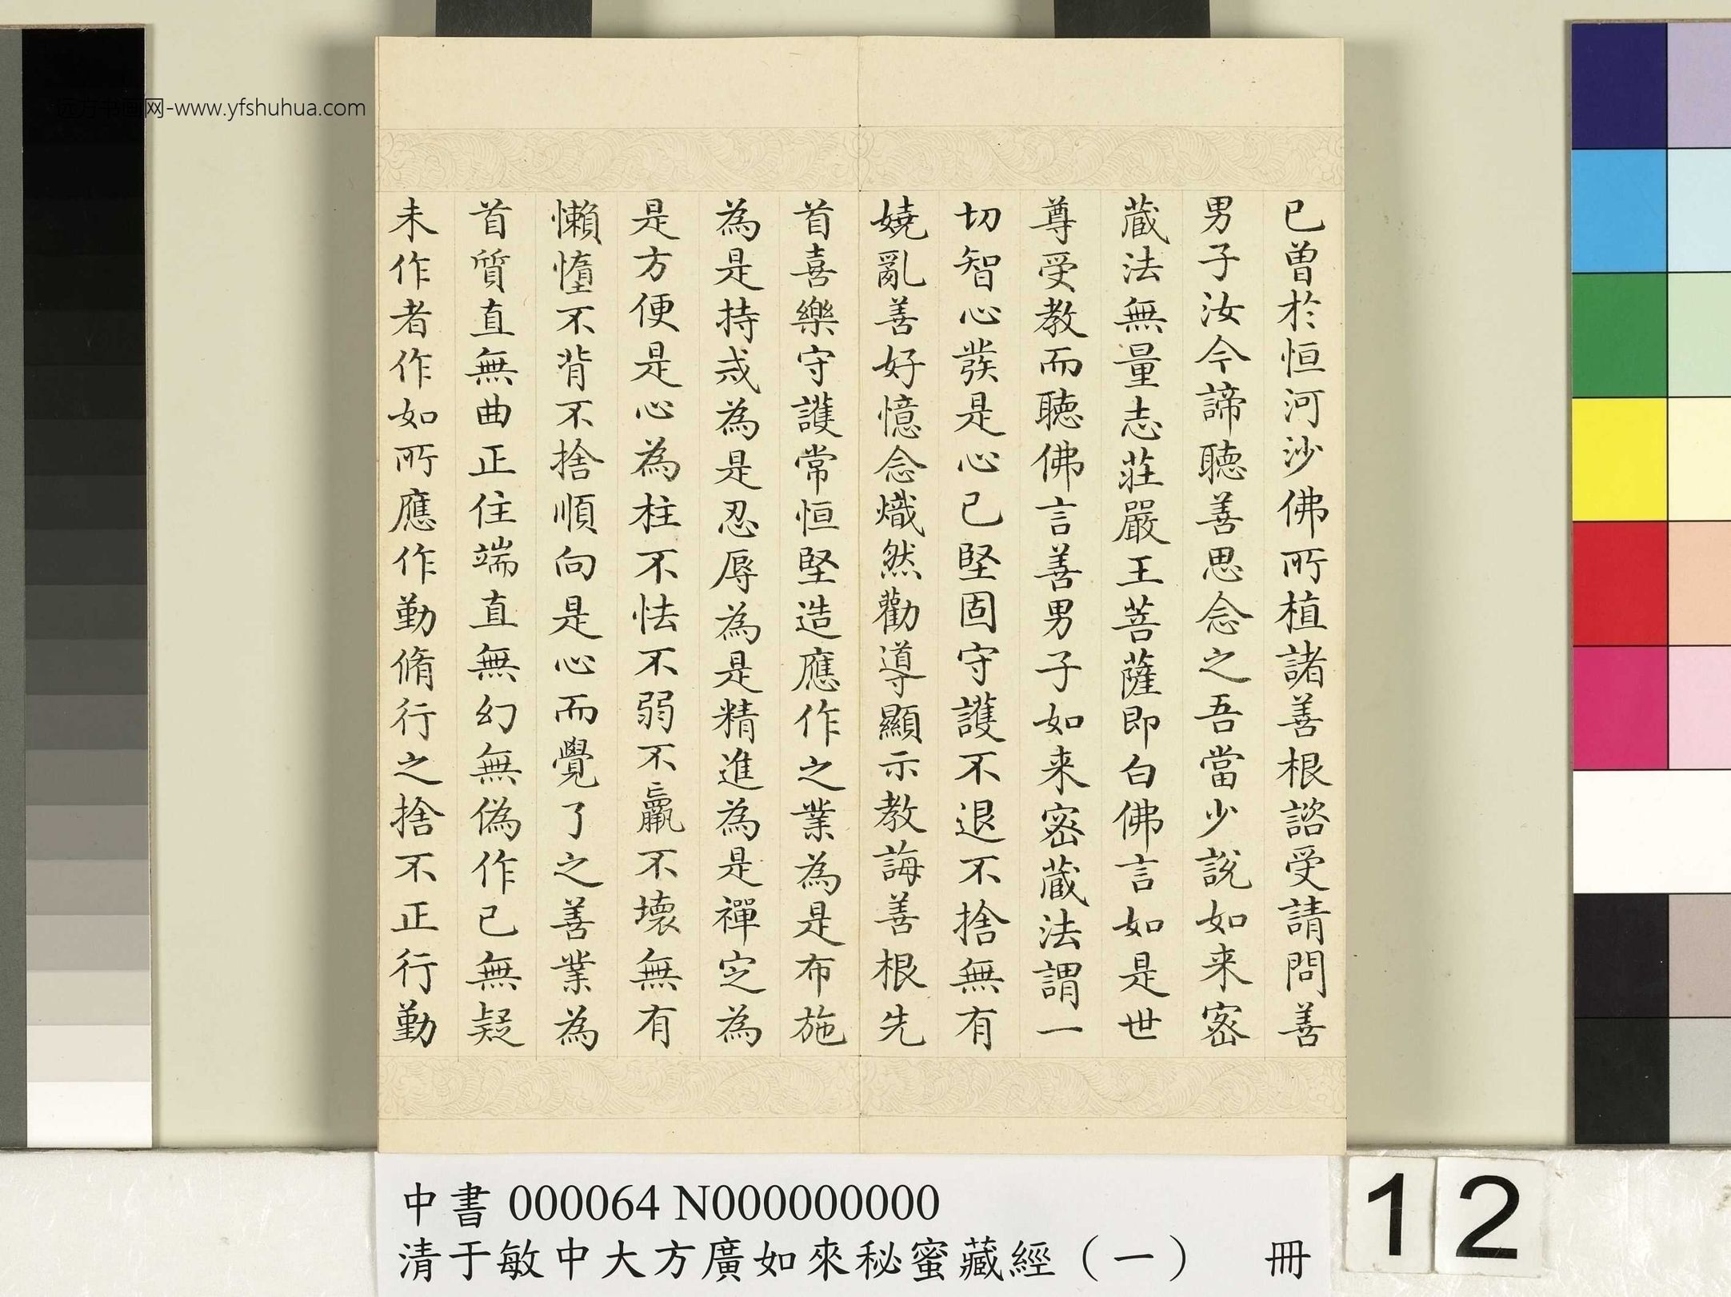 已曾於恒河沙佛所植諸善根諮受請問善
男子汝今諦聽善思念之吾當少說如来宻
蔵法無量志莊嚴王菩薩即白佛言如是世
尊受教而聽佛言善男子如来宻蔵法謂一
切智心發是心已堅固守護不退不捨無有
嬈亂善好憶念熾然勸導顯示教誨善根先
首喜樂守護常恒堅造應作之業為是布施
為是持戒為是忍辱為是精進為是禪定為
是方便是心為柱不怯不弱不羸不壞無有
懶憧不背不捨順向是心而覺了之善業為
首質直無曲正住端直無幻無偽作已無疑
未作者作如所應作勤脩行之捨不正行勤
网-www.yfshuhua.com
中書 000064 N000000000
清于敏中大方廣如來秘蜜藏經（一） 冊
12